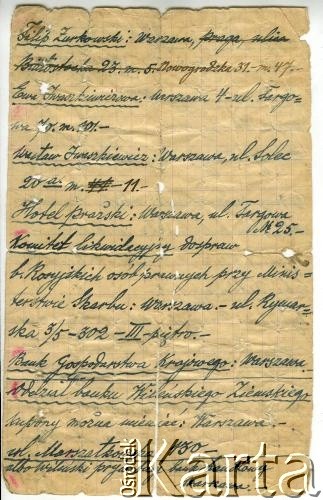 Filip Żurkowski: Warszawa, praga, ulica
Brzostocka 23. m. 5. Nowogrodzka 31. - m. 47-
Ewa Iwaszkiewiczowa: Warszawa 4 - ul. Targo-
wa 70. m. 101.-
Wacław Iwaszkiewicz: Warszawa, ul. Solec
20a m. 11.-
Hotel praski: Warszawa, ul. Targowa
№ 25.-
Komitet likwidacyjny do spraw
b. Rosyjskich osób prawnych przy Minis-
terstwie Skarbu: Warszawa.- ul. Rymar-
ska 3/5 - 302 - III piętro.-
Bank Gospodarstwa Krajowego: Warszawa
Oddział banku Wileńskiego Ziemskiego
kupony można mieniać: Warszawa.-
ul. Marszałkowska 150
albo Wileński
Ośrodek
Karta